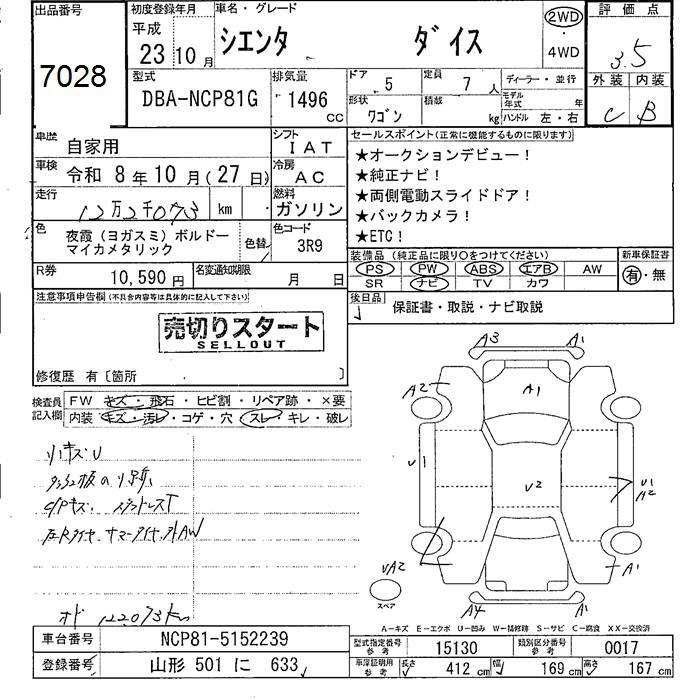 出品番号
7028
初度登録年月
平成
23年10月
車名・グレード
シエンタ ダイス
2WD
・
4WD
評価点
3.5
外装 内装
C B
型式
DBA-NCP81G
排気量
1496 CC
ドア 5
定員 7人
ディーラー・並行
形状 ワゴン
積載 kg
モデル年式 年
ハンドル 左・右
車歴 自家用
シフト
IAT
車検 令和 8年10月(27日)
冷房
AC
走行 12万2千073 km
燃料
ガソリン
色 夜霞(ヨガスミ)ボルドー
マイカメタリック
色替
色コード
3R9
R券 10,590円
名変通知期限 月 日
セールスポイント(正常に機能するものに限ります)
★オークションデビュー!
★純正ナビ!
★両側電動スライドドア!
★バックカメラ!
★ETC!
装備品(純正品に限り○をつけてください)
PS PW ABS エアB AW
SR ナビ TV カワ
新車保証書
有・無
後日品
保証書・取説・ナビ取説
注意事項申告欄(不具合内容等は具体的に記入して下さい)
売切りスタート
SELLOUT
修復歴 有〔箇所 〕
検査員
記入欄
FW キズ・飛石・ヒビ割・リペア跡・×要
内装 キズ・汚レ・コゲ・穴・スレ・キレ・破レ
A3 A1
A2 A1
U1 U2 U1
A2
UA2 A1
スペア
A4 A1
オド 122073km
A-キズ E-エクボ U-凹み W-補修跡 S-サビ C-腐食 XX-交換済
車台番号 NCP81-5152239
登録番号 山形 501 に 633
型式指定番号
参考
15130
類別区分番号
参考
0017
車庫証明用
参考
長さ 412 cm
幅 169 cm
高さ 167 cm